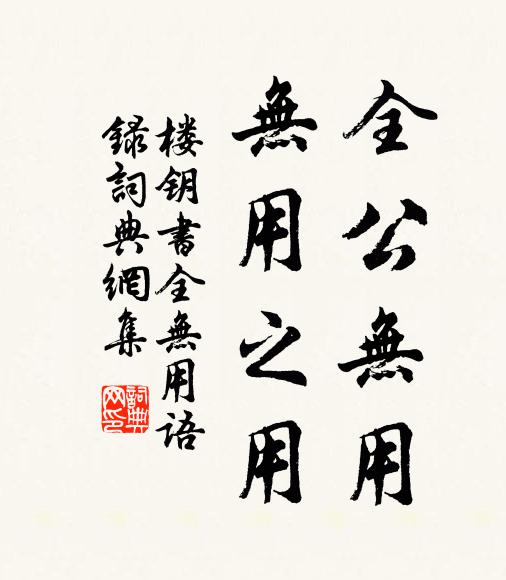 全公無用
無用之用
楼钥書全無用语
録詞典網集
詞典
网印